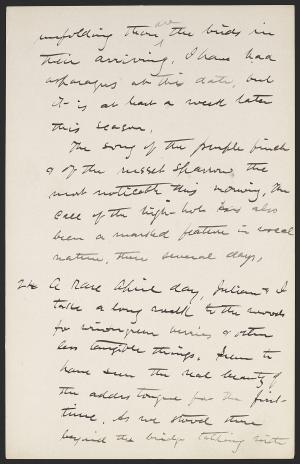 unfolding than are the birds in
their arriving. I have had
asparagus at this date, but
it is at least a week later
this season.
The song of the purple finch
& of the russet sparrow the
most noticeable this morning. The
call of the high-hole has also
been a marked feature in vocal
nature, these several days.
24 A rare April day, Julian & I
take a long walk to the woods
for wintergreen berries & other
less tangible things. Seem to
have seen the real beauty of
the adders tongue for the first
time. As we stood there
beyond the bridge talking with